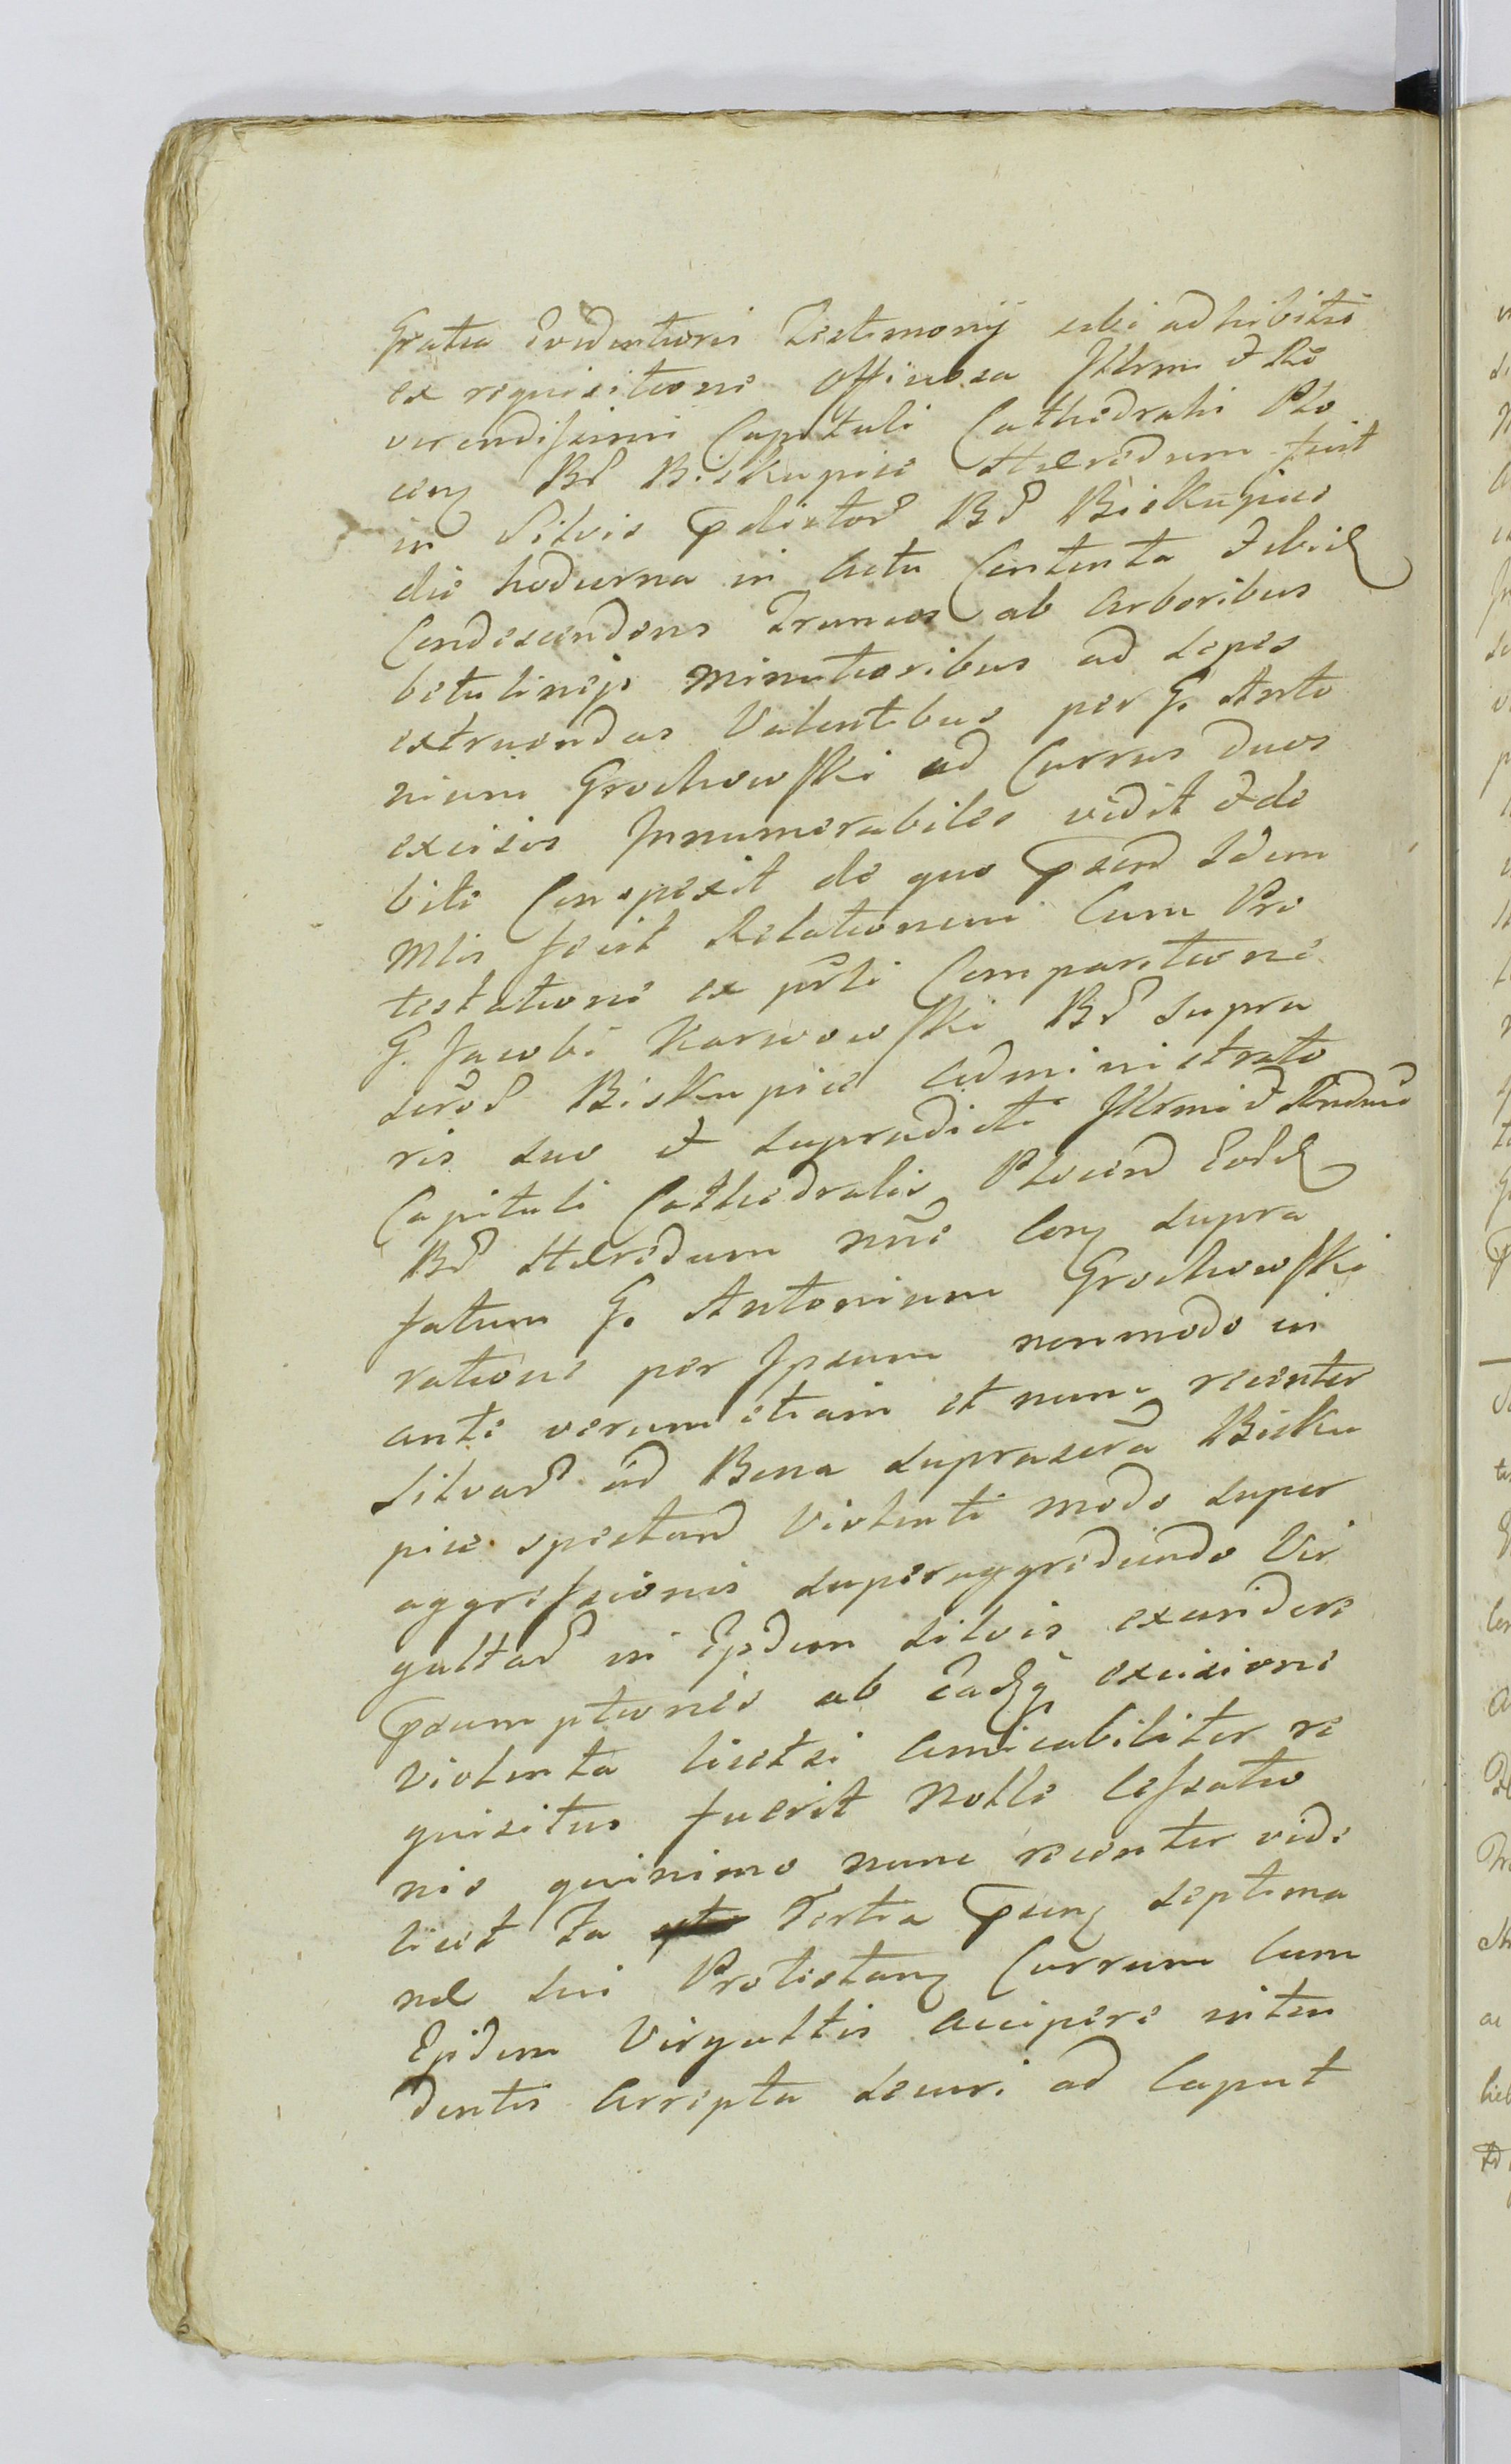 Gratia Evidentioris Testimonij sibi adhibitis
ex requisitione officiosa Illrmi et Re
verendissimi Capituli Cathedralis Plo
cen Bd Biskupice Hæredum fuit
in Silvis Pdictor Bd Biskupice
die hodierna in Actu Contenta et ibid
Condescendens Truncos ab Arboribus
betulineis minutioribus ad sepes
extruendas Valentibus per G. Anto
nium Grochowski ad Currus duos
excisos Innumerabiles vidit et de
bite Conspexit de quo Psend Idem
Mlis fecit Relationem Cum Pro
testatione ex prti Comparitione
G. Jacobi Karwowski Bd supra
scrod Biskupice administrato
ris suo et supradicti Illrmi et Rndmi
Capituli Cathedralis Plocen Eod
Bd Hæredum nne Con supra
fatum G. Antonium Grochowski
ratione per Ipsum nonmodo in
ante verum etiam et nunc recenter
Silvad ad Bona suprascra Bisku
pice spectand Violenti modo super
aggressionis superaggrediendo Vir
gultad in Eisdem silvis excindere
Psumptionis ab Eadq excisione
violenta licet si amicabiliter re
quisitus fuerit Nolle Cessatio
nis quinimo nunc recenter vide
licet Fa Tertia Psen septima
næ sui Protestan Currum cum
Eisdem Virgultis accipere inten
dentis Arrepta securi ad Caput